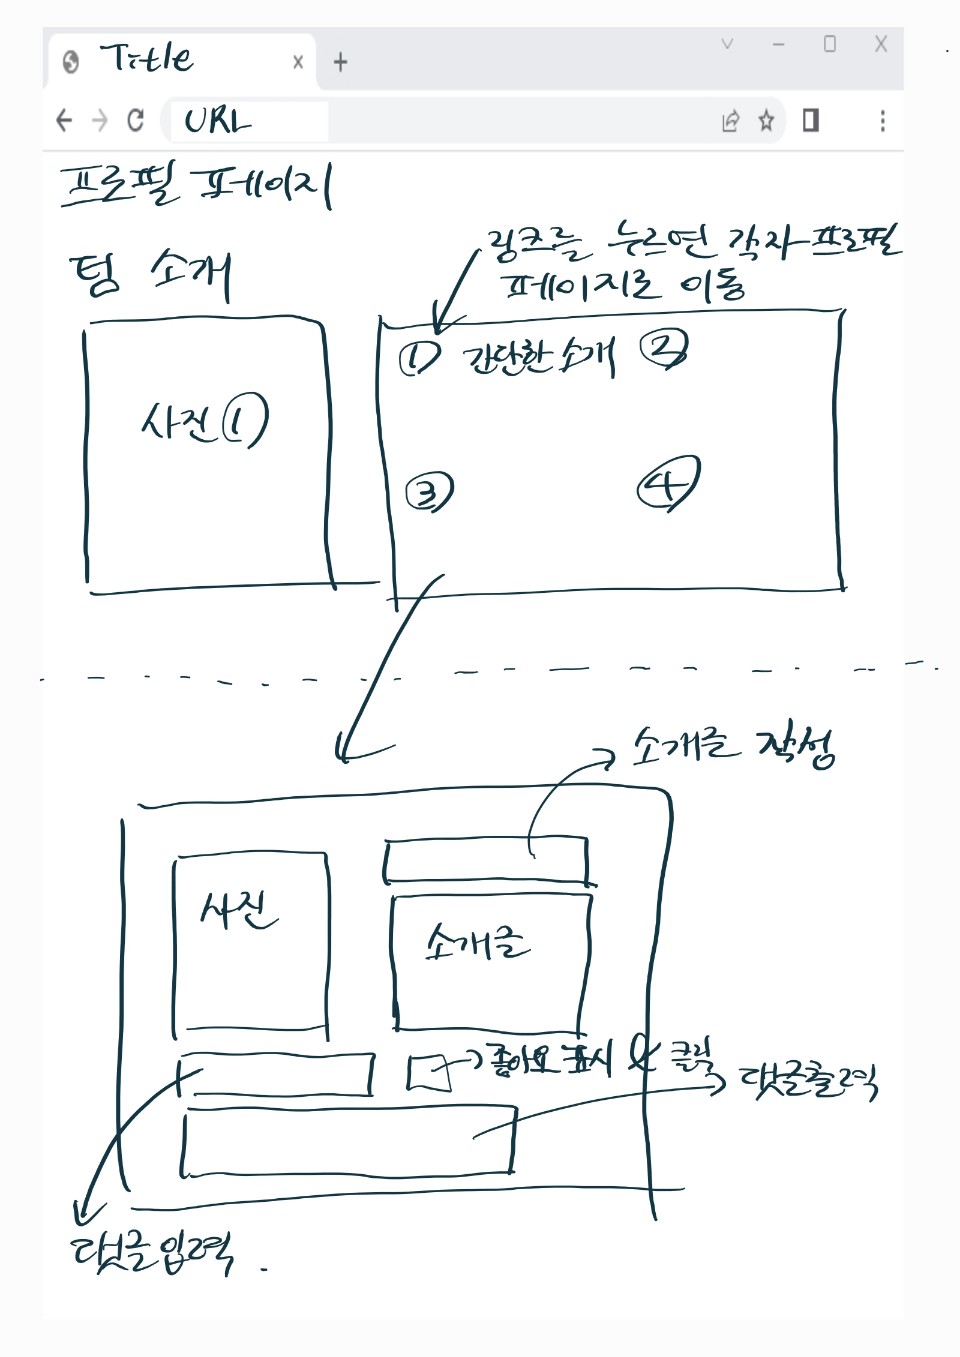 Title
URL
프로필 페이지
링크를 누르면 각자 프로필
페이지로 이동
팀 소개
① 간단한 소개 ②
사진①
③ ④
소개글 작성
사진
소개글
좋아요 표시 & 클릭
댓글출력
댓글입력.